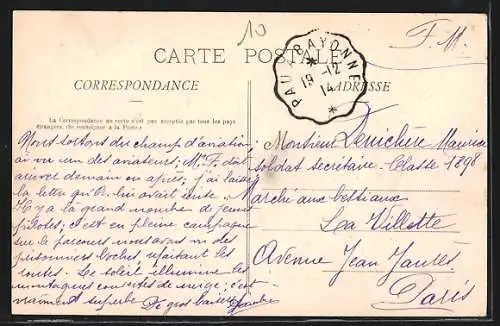 10
F. M.
CARTE POSTALE
PAU * BAYONNE *
19 -12
14
CORRESPONDANCE
ADRESSE
La Correspondance au verso n'est pas acceptée par tous les pays
étrangers. (Se renseigner à la Poste.)
Nous sortons du champ d'aviation,
ai vu un des aviateurs; M. F. doit
arriver demain en après; j'ai laissé
la lettre qu'il lui avait écrite.
Il y a là grand nombre de jeunes
pilotes; c'est en pleine campagne
sur le parcours nous avons vu des
prisonniers boches refaisant les
routes. Le soleil illumine les
montagnes couvertes de neige; c'est
vraiment superbe De gros baisers
Monsieur Denichère Maurice
soldat secrétaire. Classe 1898
Marché aux bestiaux
La Villette
Avenue Jean Jaurès
Paris